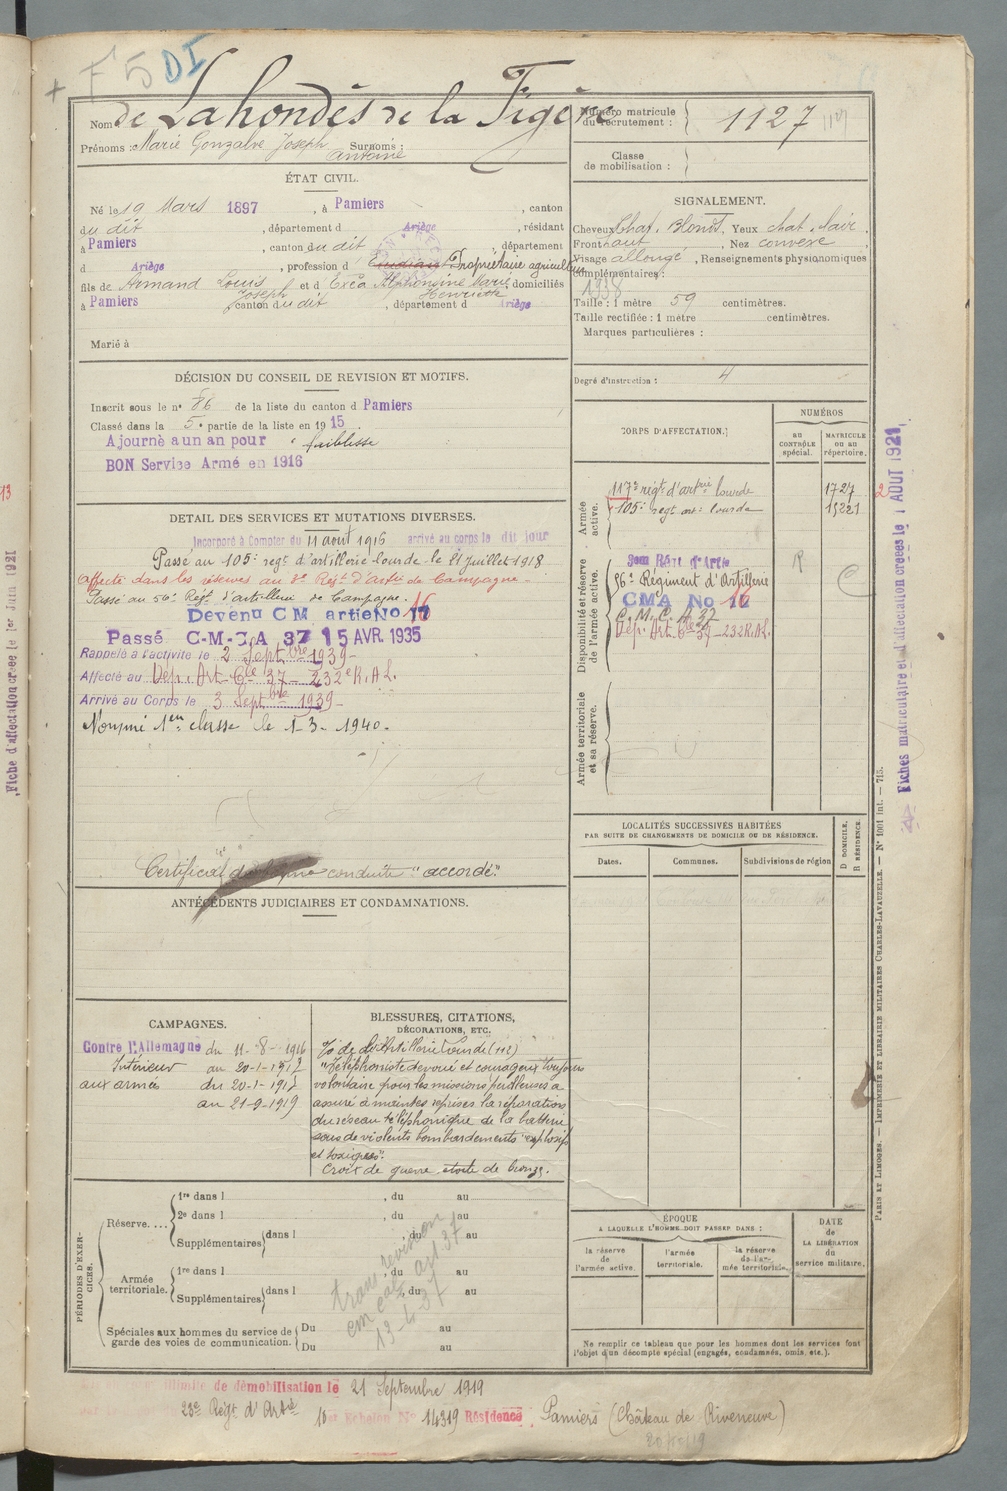 F 5 DI
Nom de Lahondès de la Figère
Prénoms : Marie Gonzalve Joseph Surnoms :
Antoine
Numéro matricule
du recrutement : 1127
Classe
de mobilisation :
ÉTAT CIVIL.
Né le 19 Mars 1897, à Pamiers, canton
du dit, département d Ariège, résidant
à Pamiers, canton du dit, département
d Ariège, profession d Etudiant Propriétaire agriculteur
fils de Armand Louis et d Exéa Alphonsine Marie domiciliés
Joseph Henriette
à Pamiers canton du dit, département d Ariège
Marié à
SIGNALEMENT.
Cheveux Chat. Blonds, Yeux chat. clair
Front haut, Nez convexe
Visage allongé, Renseignements physionomiques
complémentaires :
1938
Taille : 1 mètre 59 centimètres.
Taille rectifiée : 1 mètre centimètres.
Marques particulières :
Degré d'instruction : 4
DÉCISION DU CONSEIL DE REVISION ET MOTIFS.
Inscrit sous le n° 86 de la liste du canton d Pamiers
Classé dans la 5e partie de la liste en 1915
Ajourné a un an pour faiblesse
BON Service Armé en 1916
DETAIL DES SERVICES ET MUTATIONS DIVERSES.
Incorporé à Compter du 11 août 1916 arrivé au corps le dit jour
Passé au 105e regt d'artillerie lourde le 21 juillet 1918
Affecté dans les réserves au 3e Régt d'Artie de Campagne.
Passé au 56e Régt d'artillerie de Campagne.
Devenu CM artie No 17 16
Passé C-M-A 37 15 AVR. 1935
Rappelé à l'activité le 2 Septbre 1939-
Affecté au Dép. Art. Cle 37 - 232e R.A.L.
Arrivé au Corps le 3 Septbre 1939-
Nommé 1ere classe le 1-3-1940-
Certificat de bonne conduite "accordé"
CORPS D'AFFECTATION.
NUMÉROS
AU CONTRÔLE spécial.
MATRICULE ou au répertoire.
Armée active.
117e régt d'artrie lourde 1727
105e regt art. lourde 19221
Disponibilité et réserve de l'armée active.
3em Régt d'Artie
56e Régiment d'Artillerie
CMA No 17 16
C.M.C.A. 37
Dép. Art. Cle 37 - 232 R.A.L.
Armée territoriale et sa réserve.
LOCALITÉS SUCCESSIVES HABITÉES
PAR SUITE DE CHANGEMENTS DE DOMICILE OU DE RÉSIDENCE.
Dates. Communes. Subdivisions de région
D DOMICILE.
R RÉSIDENCE.
ANTÉCÉDENTS JUDICIAIRES ET CONDAMNATIONS.
CAMPAGNES.
Contre l'Allemagne du 11-8-1916
Intérieur au 20-1-1917
aux armées du 20-1-1917
au 21-9-1919
BLESSURES, CITATIONS,
DÉCORATIONS, ETC.
"Téléphoniste dévoué et courageux toujours
volontaire pour les missions périlleuses a
assuré à maintes reprises la réparation
du réseau téléphonique de la batterie
sous de violents bombardements "explosifs
et toxiques".
Croix de guerre étoile de bronze.
PÉRIODES D'EXERCICES.
Réserve.... 1re dans l , du au
2e dans l , du au
Supplémentaires dans l du au
Armée territoriale. 1re dans l , du au
Supplémentaires dans l , du au
Spéciales aux hommes du service de garde des voies de communication. Du au
Du au
trans revision
em cal art 37
13-4-37
ÉPOQUE
A LAQUELLE L'HOMME DOIT PASSER DANS :
la réserve de l'armée active.
l'armée territoriale.
la réserve de l'armée territoriale.
DATE de LA LIBÉRATION du service militaire.
Ne remplir ce tableau que pour les hommes dont les services font
l'objet d'un décompte spécial (engagés, condamnés, omis, etc.).
illimité de démobilisation le 21 Septembre 1919
23e Régt d'Artie 10em Echelon N° 14319 Résidence Pamiers (Château de Riveneuve)
Fiche d'affectation créée le 1er Juin 1921
Fiches matriculaire et d'affectation créées le 1 AOUT 1921
PARIS ET LIMOGES. — IMPRIMERIE ET LIBRAIRIE MILITAIRES CHARLES-LAVAUZELLE. — N° 1001 int. — 715.